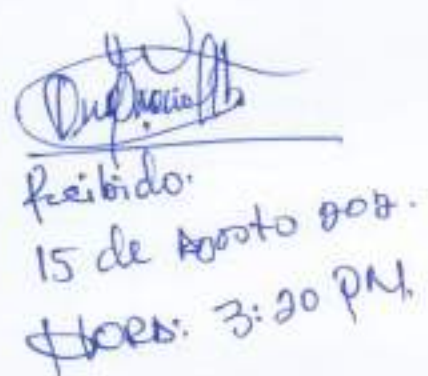 Recibido:
15 de Agosto 202.
HORA: 3:20 PM.